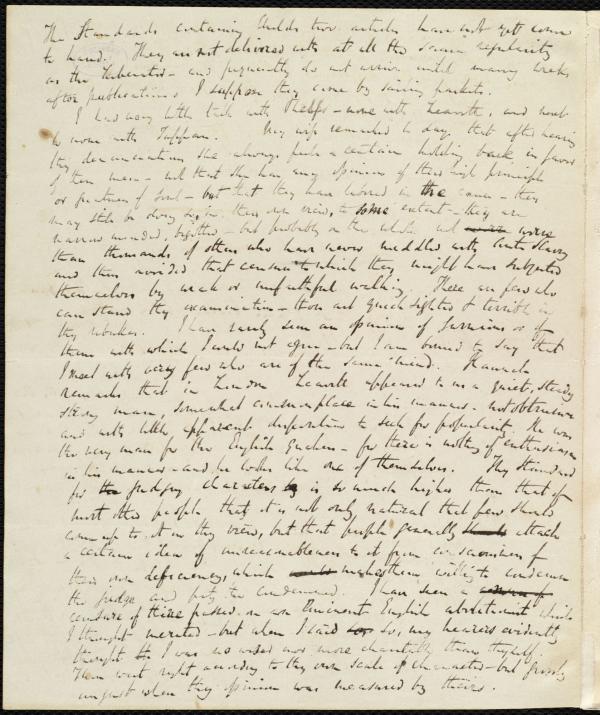 The Standards containing Childs two articles have not yet come
to hand. They are not delivered with at all the same regularity
as the Liberator - and frequently do not arrive until many weeks
after publication. I suppose they come by sailing packets.
I had very little talk with Phelps - none with Leavitt, and next
to none with Tappan. My wife remarked to day, that after hearing
thy denunciations she always feels a certain holding back in favor
of them men - not that she has any opinion of their high principle
or greatness of soul - but that they have labored in the cause - they
may still be doing so, in their own view, to some extent - they are
narrow minded, bigotted - but probably on the whole not worse
than thousands of others who have never meddled with Anti Slavery
and thus avoided that censure to which they might have subjected
themselves by weak or unfaithful walking. There are few who
can stand thy examination - thou art quick sighted & terrible in
thy rebukes. I have rarely seen an opinion of persons or of
them with which I could not agree - but I am bound to say that
I meet with very few who are of the same mind. Hannah
remarks that in London Leavitt appeared to us a quiet, steady
strong man, somewhat commonplace in his manners - not obtrusive
and with little apparent disposition to seek for popularity. He was
the very man for the English Quakers - for there is nothing of enthusiasm
in his manner - and he looks like one of themselves. Thy standard
for judging characters is so much higher than that of
most other people that it is not only natural that few should
come up to it in thy view, but that people generally attach
a certain idea of unreasonableness to it from consciousness of
their own deficiency, which makes them willing to condemn
the judge and pity the condemned. I have seen a
censure of thine passed on an Eminent English abolitionist which
I thought merited - but when I said so, my hearers evidently
thought I was no wiser nor more charitable than thyself.
Thou went right according to thy own scale of character - but grossly
unjust when thy opinion was measured by theirs.